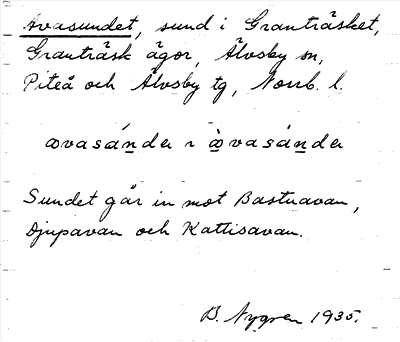 Avasundet, sund i Granträsket,
Granträsk ägor, Älvsby sn,
Piteå och Älvsby tg, Norrb. l.
avasánder ı àvasánda
Sundet går in mot Bastuavan,
Djupavan och Kattisavan.
B. Nygren 1935.